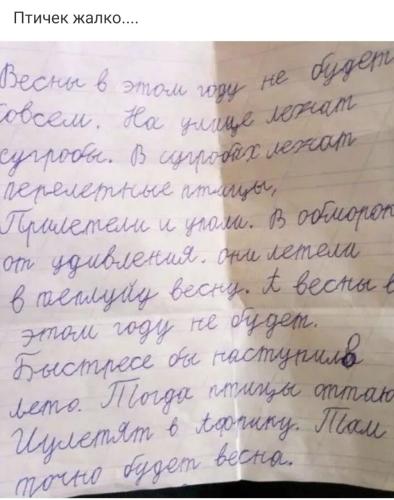 Птичек жалко....
Весны в этом году не будет
совсем. На улице лежат
сугробы. В сугробах лежат
перелетные птицы,
Прилетели и упали. В обморок
от удивления. они летели
в теплуйу весну. А весны в
этом году не будет.
Быстресе бы наступило
лето. Тогда птицы оттаю
Иулетят в Африку. Там
точно будет весна.